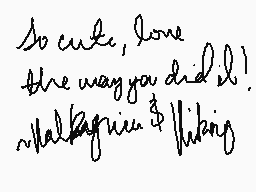 So cute, love
the way you did it!
~Valkyrie & Viking